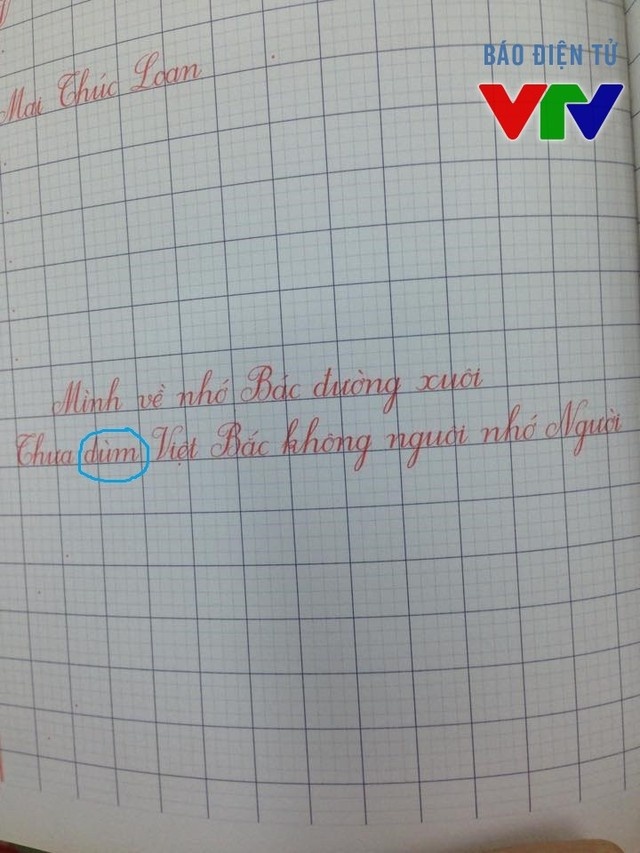 BÁO ĐIỆN TỬ
VTV
Mai Thúc Loan
Mình về nhớ Bác đường xuôi
Thưa dùm Việt Bắc không nguôi nhớ Người